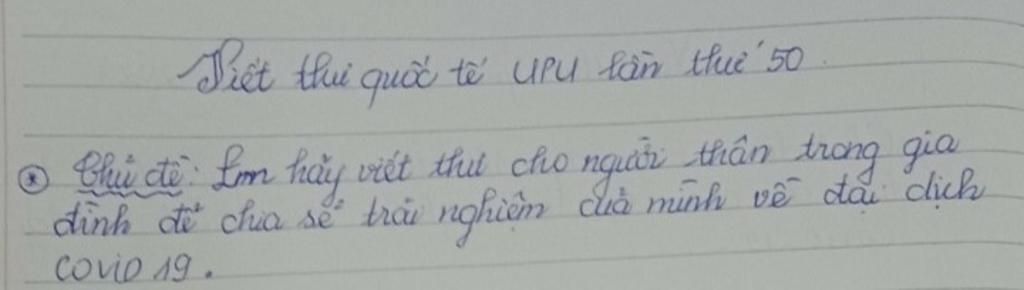 Viết thư quốc tế UPU lần thứ 50.
* Chủ đề: Em hãy viết thư cho người thân trong gia
đình để chia sẻ trải nghiệm của mình về đại dịch
covid 19.